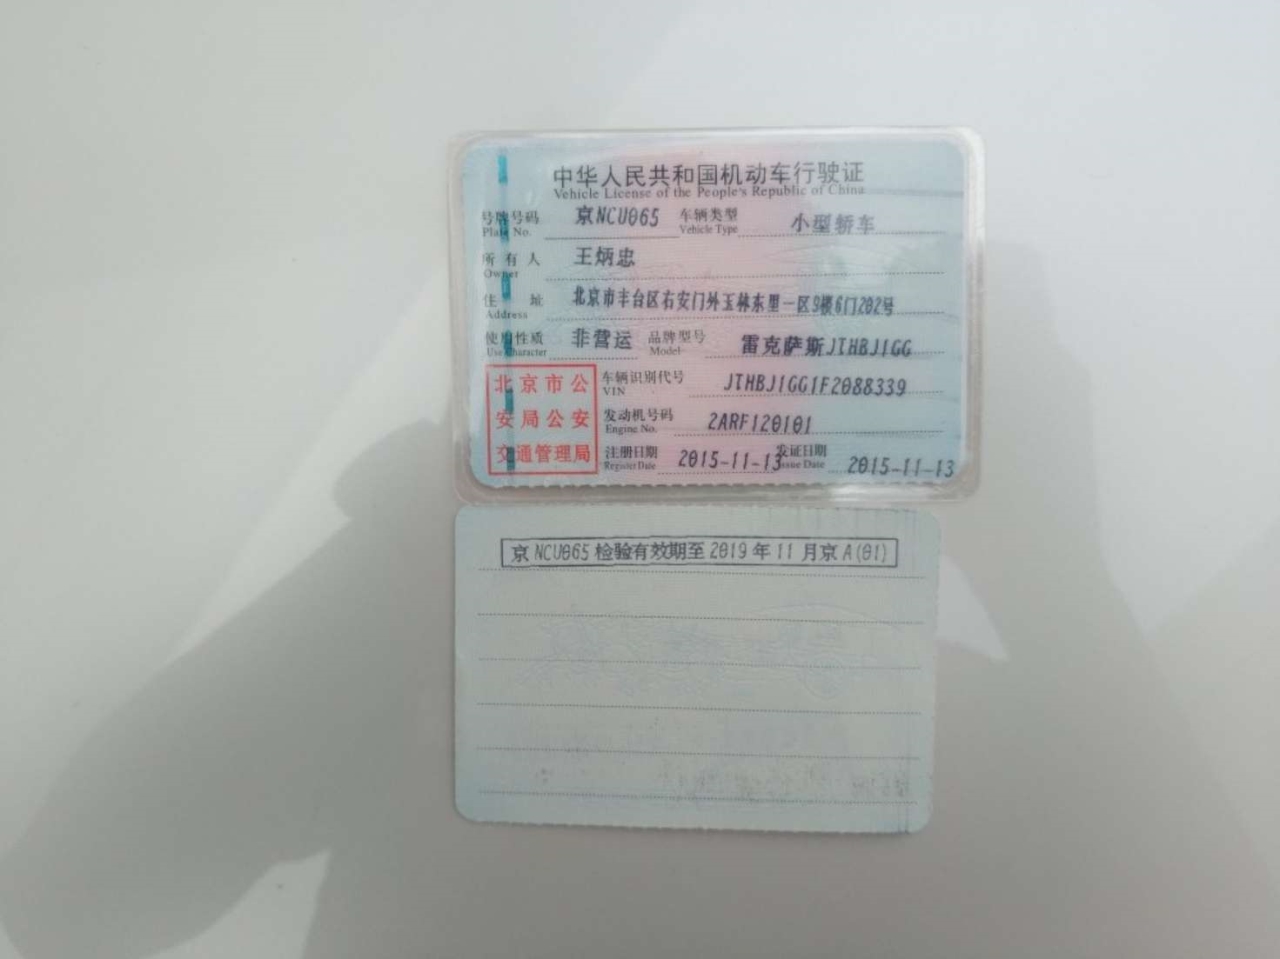 中华人民共和国机动车行驶证
Vehicle License of the People's Republic of China
号牌号码 京NCU065 车辆类型 小型轿车
Plate No. Vehicle Type
所有人 王炳忠
Owner
住址 北京市丰台区右安门外玉林东里一区9楼6门202号
Address
使用性质 非营运 品牌型号 雷克萨斯JTHBJ1GG
Use Character Model
北京市公 车辆识别代号 JTHBJ1GG1F2088339
VIN
安局公安 发动机号码 2ARF120101
Engine No.
交通管理局 注册日期 2015-11-13 发证日期 2015-11-13
Register Date Issue Date
京NCU065检验有效期至2019年11月京A(01)